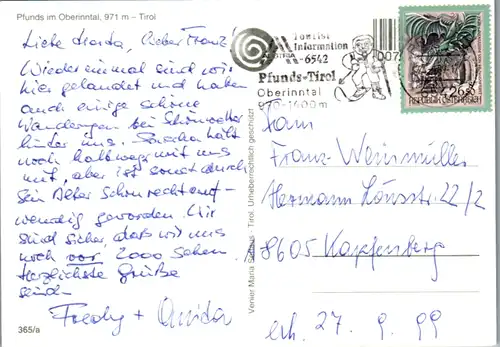 Pfunds im Oberinntal, 971 m – Tirol
Liebe Herta, lieber Franz!
Wieder einmal sind wir
hier gelandet und haben
auch einige schöne
Wanderungen bei Schönwetter
hinter uns. Sascha hält
noch halbwegs mit uns
mit, aber ist sonst durch
sein Alter schon recht auf-
wendig geworden. Wir
sind sicher, daß wir uns
noch vor 2000 sehen.
Herzlichste Grüße
send.
Fredy +
365/a
Tourist
Information
A-6542
Pfunds-Tirol
Oberinntal
970-1600m
REPUBLIK ÖSTERREICH
Fam
Franz Weinmüller
Hermann Lönsstr. 22/2
8605 Kapfenberg
erh. 27. 9. 99
Tirol. Urheberrechtlich geschützt